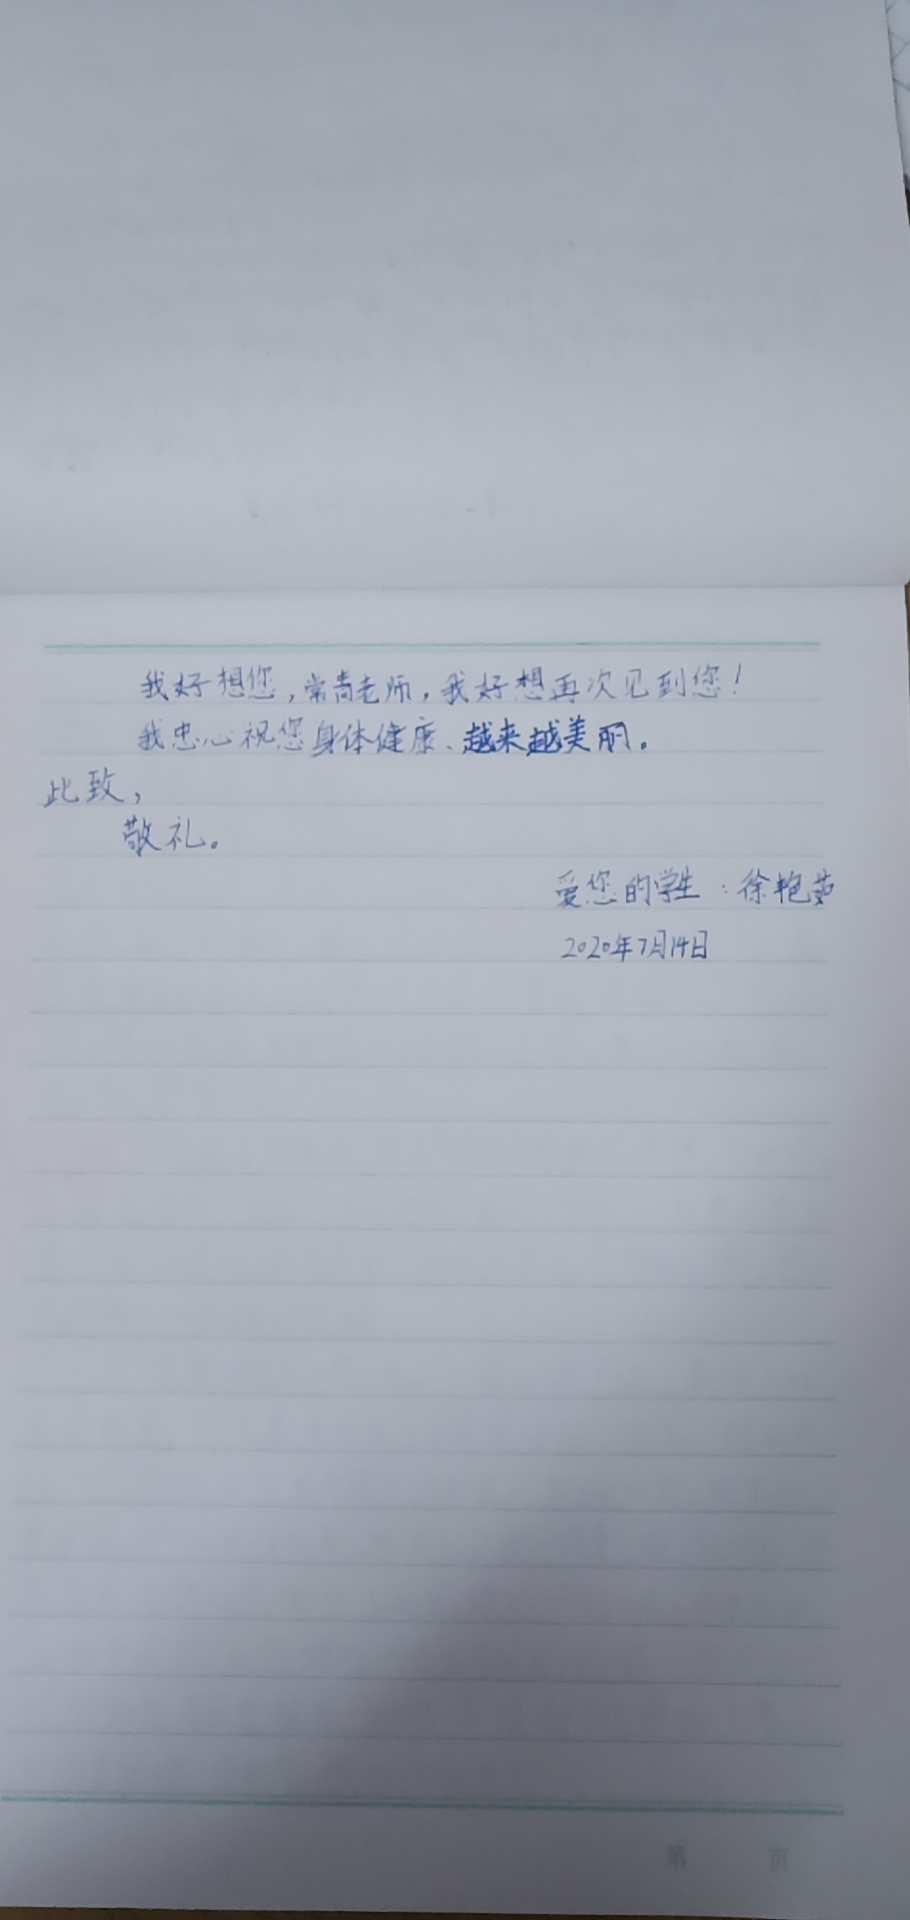 我好想您，常青老师，我好想再次见到您！
我忠心祝您身体健康、越来越美丽。
此致，
敬礼。
爱您的学生：徐艳茹
2020年7月14日
第 页